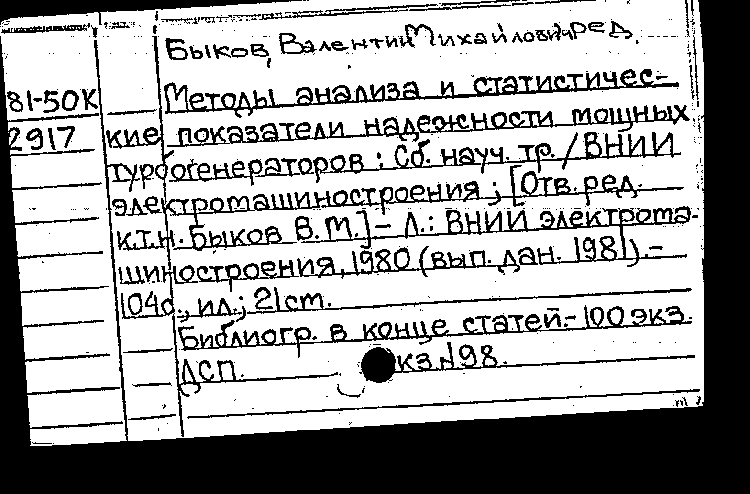 Быков, Валентин Михайлович ред.
81-50К Методы анализа и статистичес-
2917 кие показатели надежности мощных
турбогенераторов : Сб. науч. тр. / ВНИИ
электромашиностроения ; [Отв. ред.
к.т.н. Быков В. М.] - Л. : ВНИИ электрома-
шиностроения, 1980 (вып. дан. 1981). -
104с., ил.; 21 ст.
Библиогр. в конце статей. - 100 экз.
ДСП. кз. №98.